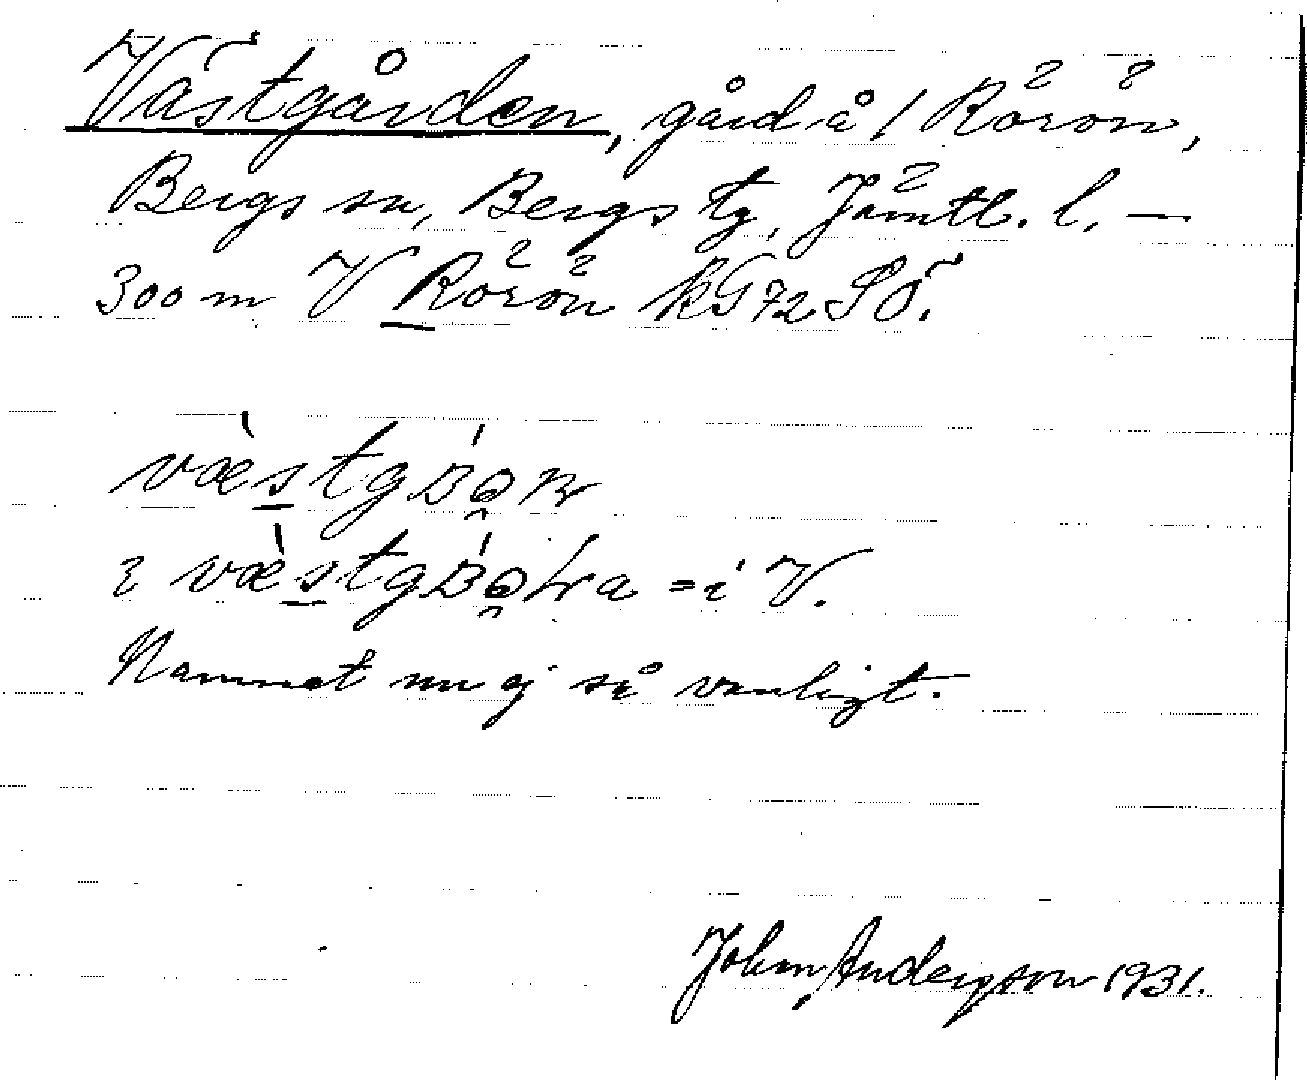 Västgården, gård å / Rörön,
Bergs sn, Bergs tg, Jämtl. l. —
300 m V Rörön kG72 SÖ.
væstg
ı væstg = i V.
Namnet nu ej så vanligt.
John Anderson 1931.